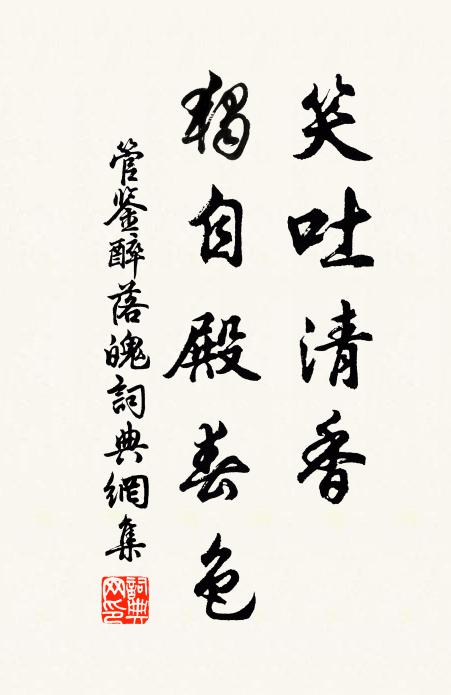 笑吐清香
獨自殿春色
管鉴醉落魄詞典網集
詞典網印